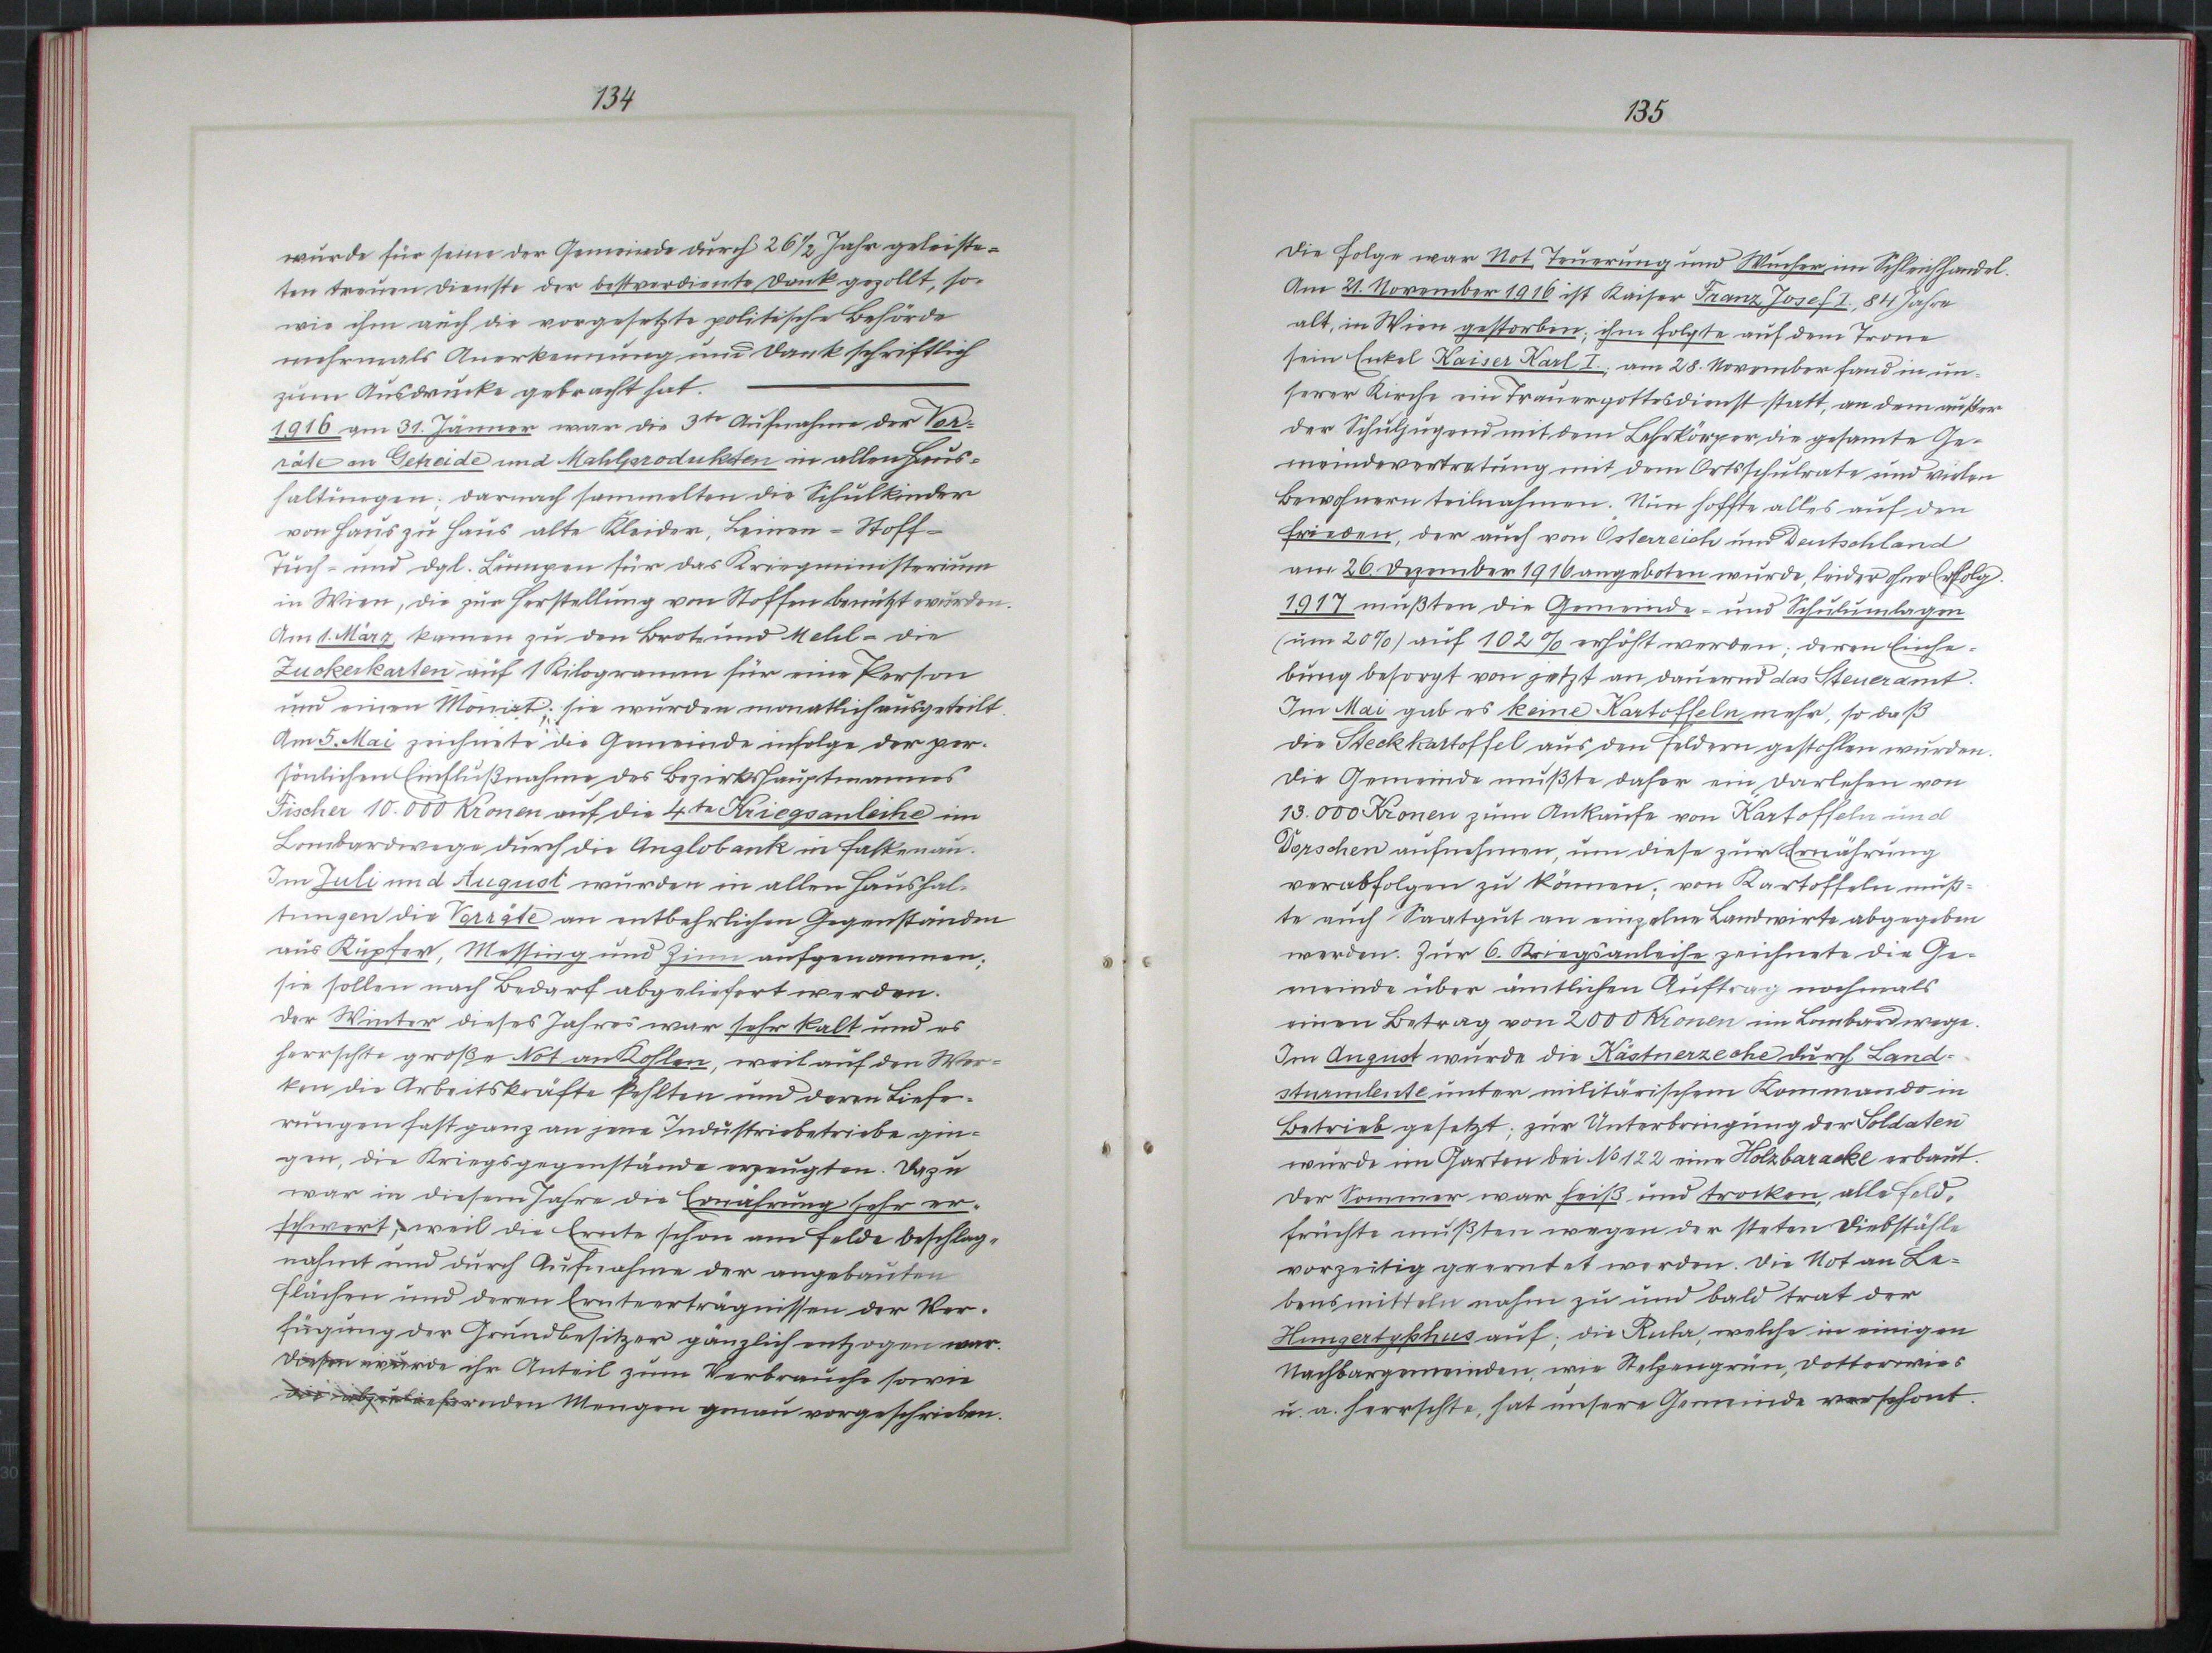 134
wurde für seine der Gemeinde durch 26 1/2 Jahr geleiste-
ten treuen Dienste der bestverdiente Dank gezollt, so-
wie ihm auch die vorgesetzte politische Behörde
mehrmals Anerkennung und Dank schriftlich
zum Ausdrucke gebracht hat.
1916 am 31. Jänner war die 3te Aufnahme der Vor-
räte an Getreide und Mahlprodukten in allen Haus-
haltungen; darnach sammelten die Schulkinder
von Haus zu Haus alte Kleider, Leinen- Stoff-
Tuch- und dgl. Lumpen für das Kriegministerium
in Wien, die zur Herstellung von Stoffen benützt wurden.
Am 1. März kamen zu den Brot- und Mehl- die
Zuckerkarten auf 1 Kilogramm für eine Person
und einen Monat; sie wurden monatlich ausgeteilt.
Am 5. Mai zeichnete die Gemeinde infolge der per-
sönlichen Einflußnahme des Bezirkshauptmannes
Fischer 10.000 Kronen auf die 4te Kriegsanleihe im
Lombardwege durch die Anglobank in Falkenau.
Im Juli und August wurden in allen Haushal-
tungen die Vorräte an entbehrlichen Gegenständen
aus Kupfer, Messing und Zinn aufgenommen;
sie sollen nach Bedarf abgeliefert werden.
Der Winter dieses Jahres war sehr kalt und es
herrschte große Not an Kohlen, weil auf den Wer-
ken die Arbeitskräfte fehlten und deren Liefe-
rungen fast ganz an jene Industriebetriebe gin-
gen, die Kriegsgegenstände erzeugten. Dazu
war in diesem Jahre die Ernährung sehr er-
schwert, weil die Ernte schon am Felde beschlag-
nahmt und durch Aufnahme der angebauten
Flächen und deren Ernteerträgnissen der Ver-
fügung der Grundbesitzer gänzlich entzogen war.
Diesen wurde ihr Anteil zum Verbrauche sowie
die abzuliefernden Mengen genau vorgeschrieben.
135
Die Folge war Not, Teuerung und Wucher im Schleichhandel.
Am 21. November 1916 ist Kaiser Franz Josef I., 84 Jahre
alt, in Wien gestorben; ihm folgte auf dem Trone
sein Enkel Kaiser Karl I.; am 28. November fand in un-
serer Kirche ein Trauergottesdienst statt, an dem außer
der Schuljugend mit dem Lehrkörper die gesamte Ge-
meindevertretung mit dem Ortsschulrate und vielen
Bewohnern teilnahmen. Nun hoffte alles auf den
Frieden, der auch von Österreich und Deutschland
am 26. Dezember 1916 angeboten wurde, leider ohne Erfolg.
1917 mußten die Gemeinde- und Schulumlagen
(um 20%) auf 102% erhöht werden; deren Einhe-
bung besorgt von jetzt an dauernd das Steueramt.
Im Mai gab es keine Kartoffeln mehr, so daß
die Steckkartoffel aus den Feldern gestohlen wurden.
Die Gemeinde mußte daher ein Darlehen von
13.000 Kronen zum Ankaufe von Kartoffeln und
Dorschen aufnehmen, um diese zur Ernährung
verabfolgen zu können; von Kartoffeln muß-
te auch Saatgut an einzelne Landwirte abgegeben
werden. Zur 6. Kriegsanleihe zeichnete die Ge-
meinde über ämtlichen Auftrag nochmals
einen Betrag von 2000 Kronen im Lombardwege.
Im August wurde die Kästnerzeche durch Land-
sturmleute unter militärischem Kommando in
Betrieb gesetzt; zur Unterbringung der Soldaten
wurde im Garten bei No 122 eine Holzbaracke erbaut.
Der Sommer war heiß und trocken, alle Feld-
früchte mußten wegen der steten Diebstähle
vorzeitig geerntet werden. Die Not an Le-
bensmitteln nahm zu und bald trat der
Hungertyphus auf; die Ruhr, welche in einigen
Nachbargemeinden, wie Stelzengrün, Dotterwies
u. a. herrschte, hat unsere Gemeinde verschont.